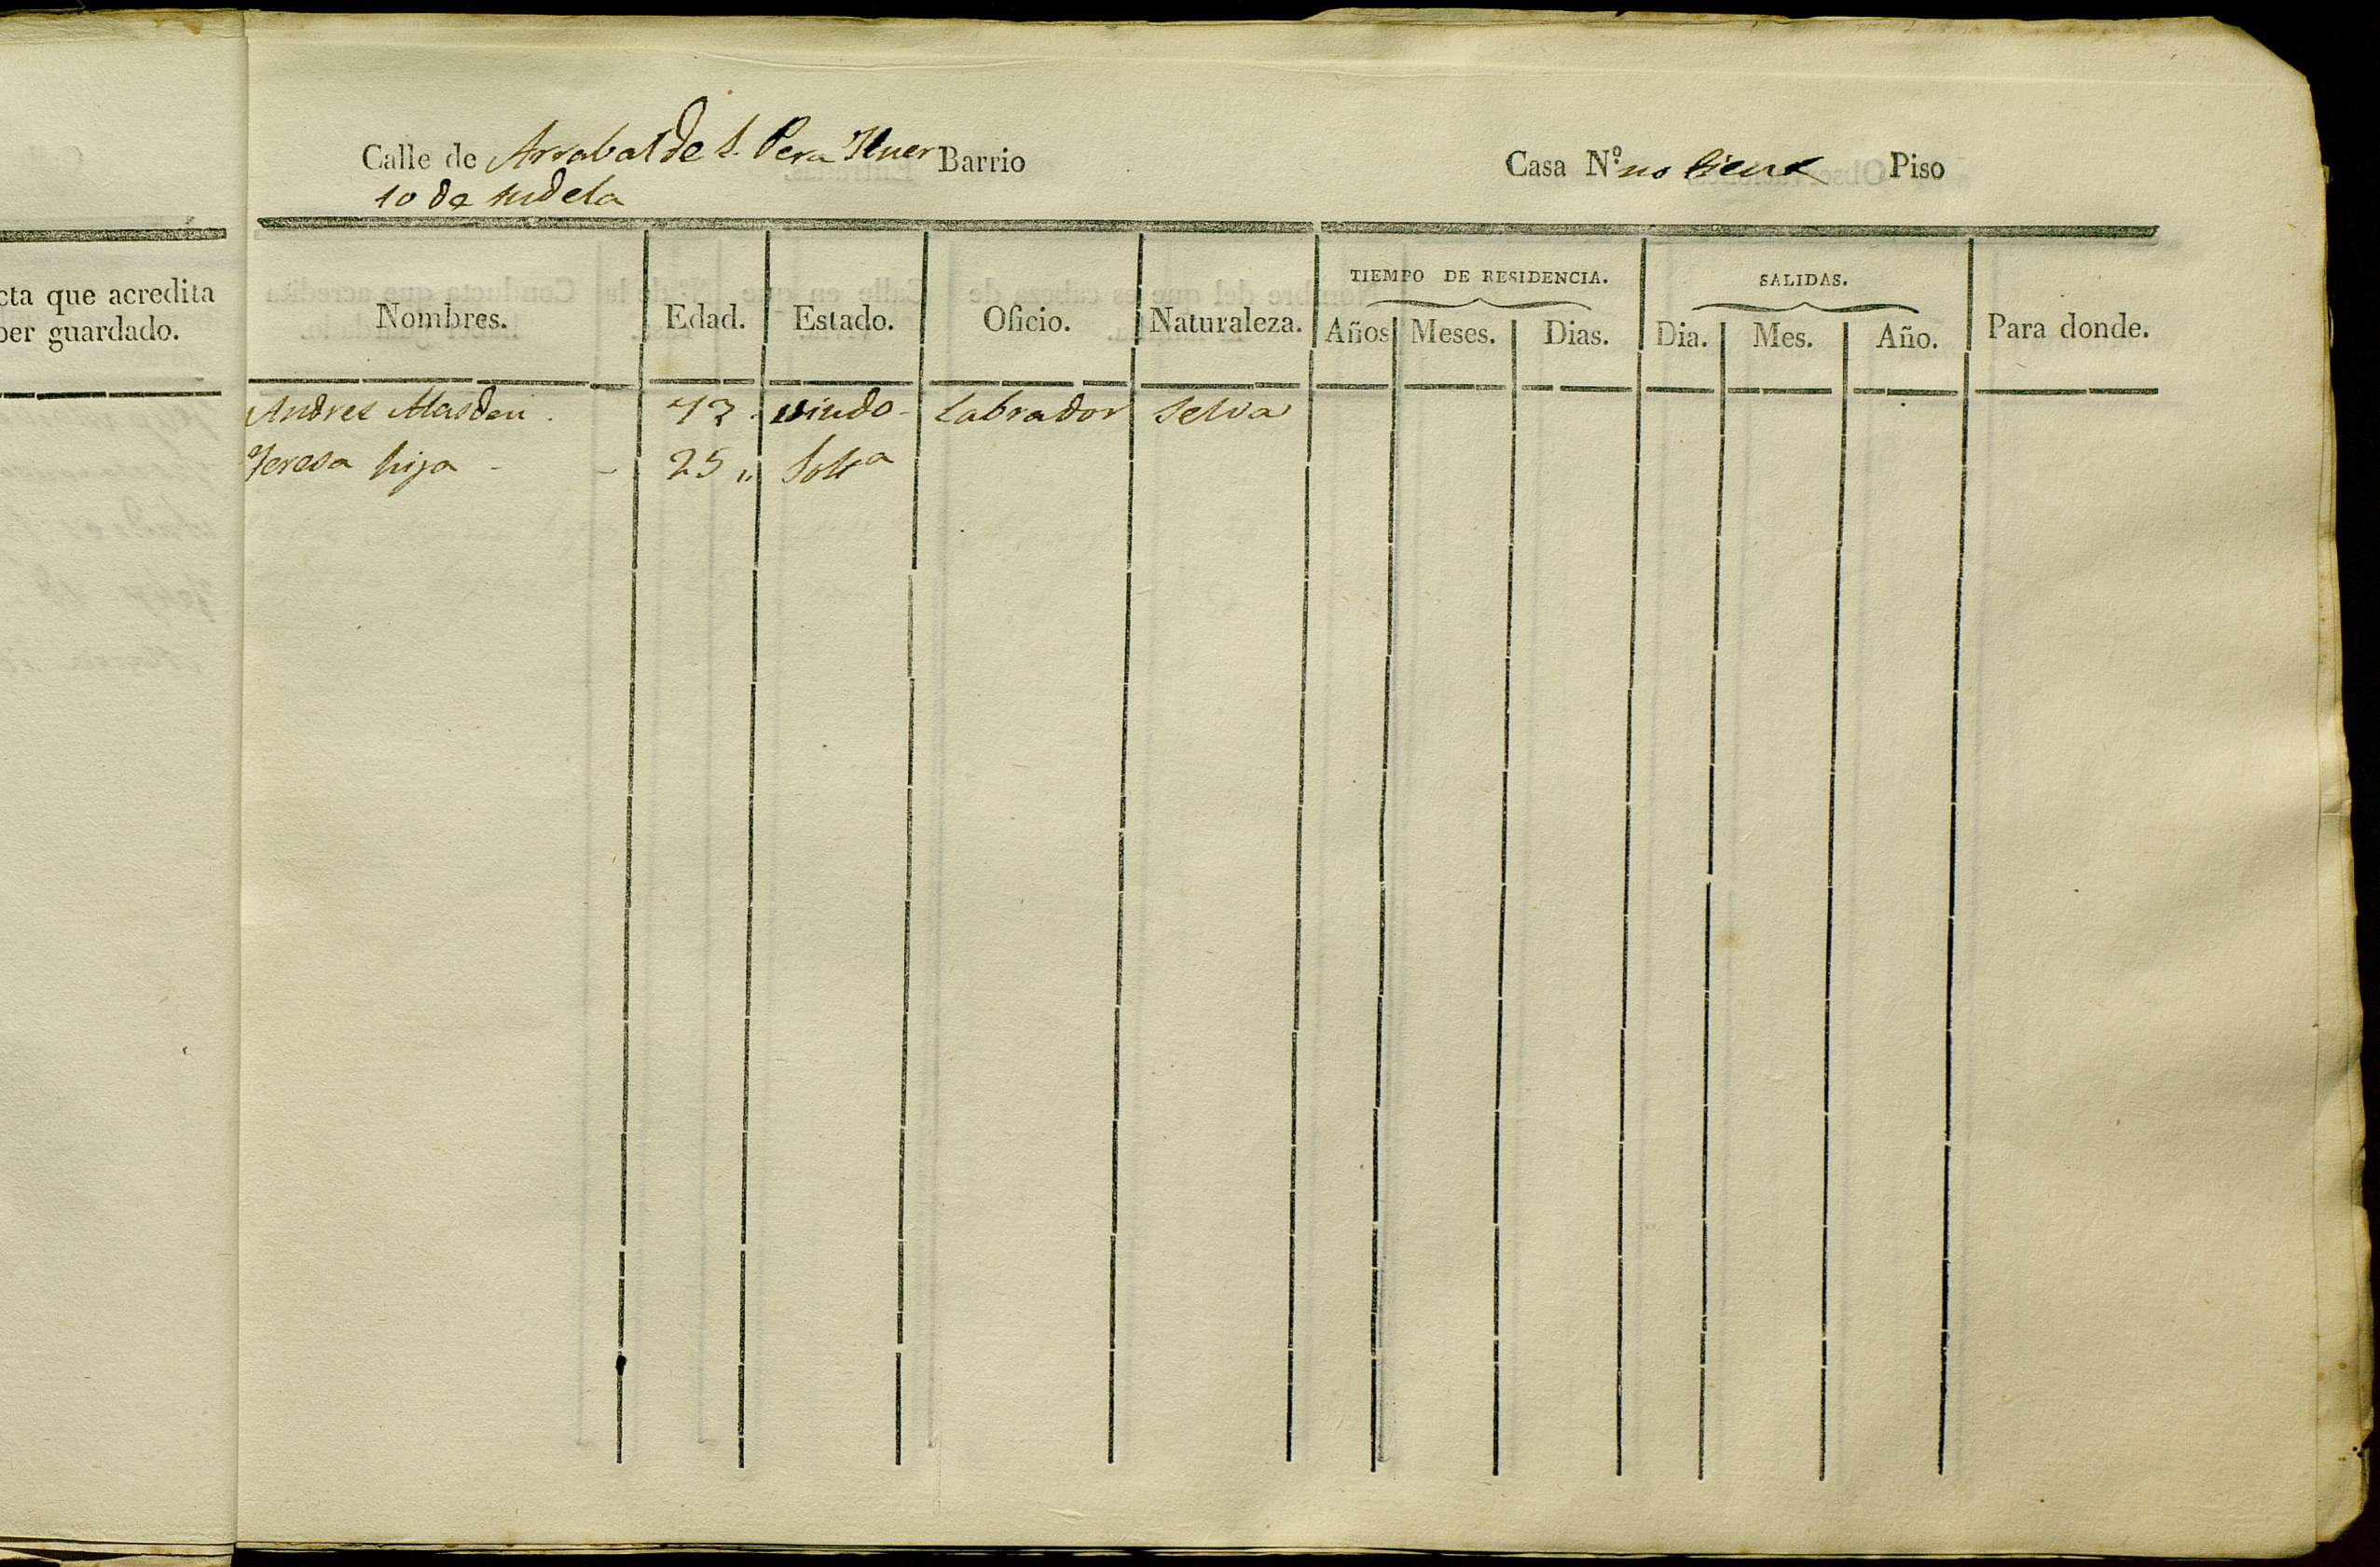 cta que acredita
ber guardado.
Calle de Arrabal de S. Pera Huer Barrio
Casa N.º no tiene Piso
to de tudela
Nombres. Edad. Estado. Oficio. Naturaleza. TIEMPO DE RESIDENCIA. SALIDAS. Para donde.
Años Meses. Dias. Dia. Mes. Año.
Andres Masdeu. viudo labrador Selva
Teresa hija - - 25 „ Solta